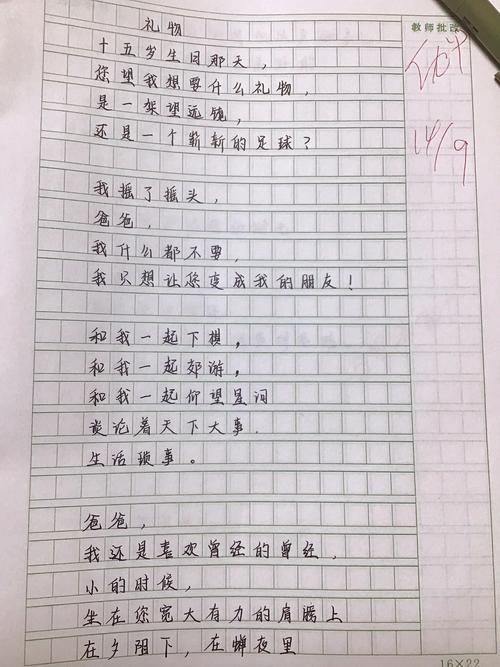 礼物
教师批改
十五岁生日那天，
您望我想要什么礼物，
是一架望远镜，
还是一个崭新的足球？
14/9
我摇了摇头，
爸爸，
我什么都不要，
我只想让您变成我的朋友！
和我一起下棋，
和我一起郊游，
和我一起仰望星河
谈论着天下大事.
生活琐事。
爸爸，
我还是喜欢曾经的曾经，
小的时候，
坐在您宽大有力的肩膀上
在夕阳下，在蝉夜里
16×22